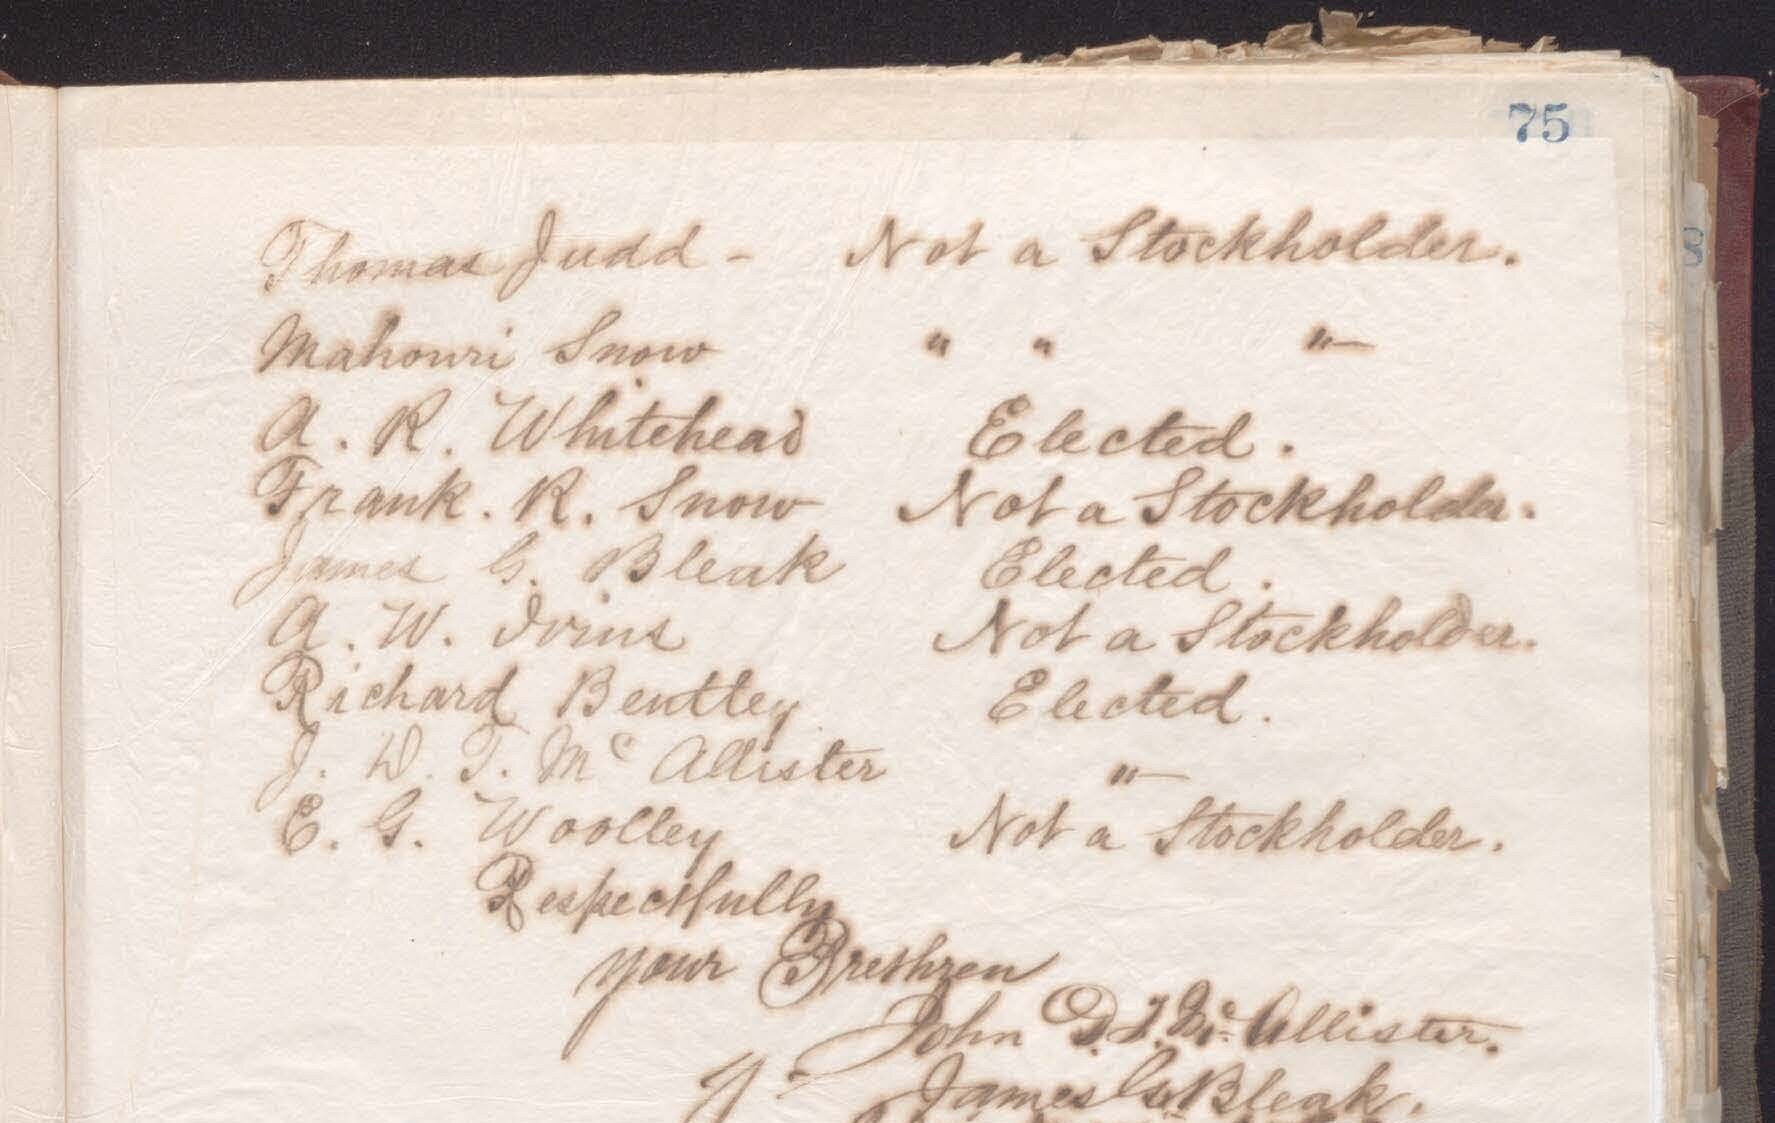 75
Thomas Judd - Not a Stockholder.
Mahonri Snow " " "—
A. R. Whitehead Elected.
Frank. R. Snow Not a Stockholder.
James G. Bleak Elected.
A. W. Ivins Not a Stockholder.
Richard Bentley Elected.
J. D. T. Mc Allister "—
E. G. Woolley Not a Stockholder.
Respectfully
your Brethren
John D. T. Mc Allister.
James G. Bleak.